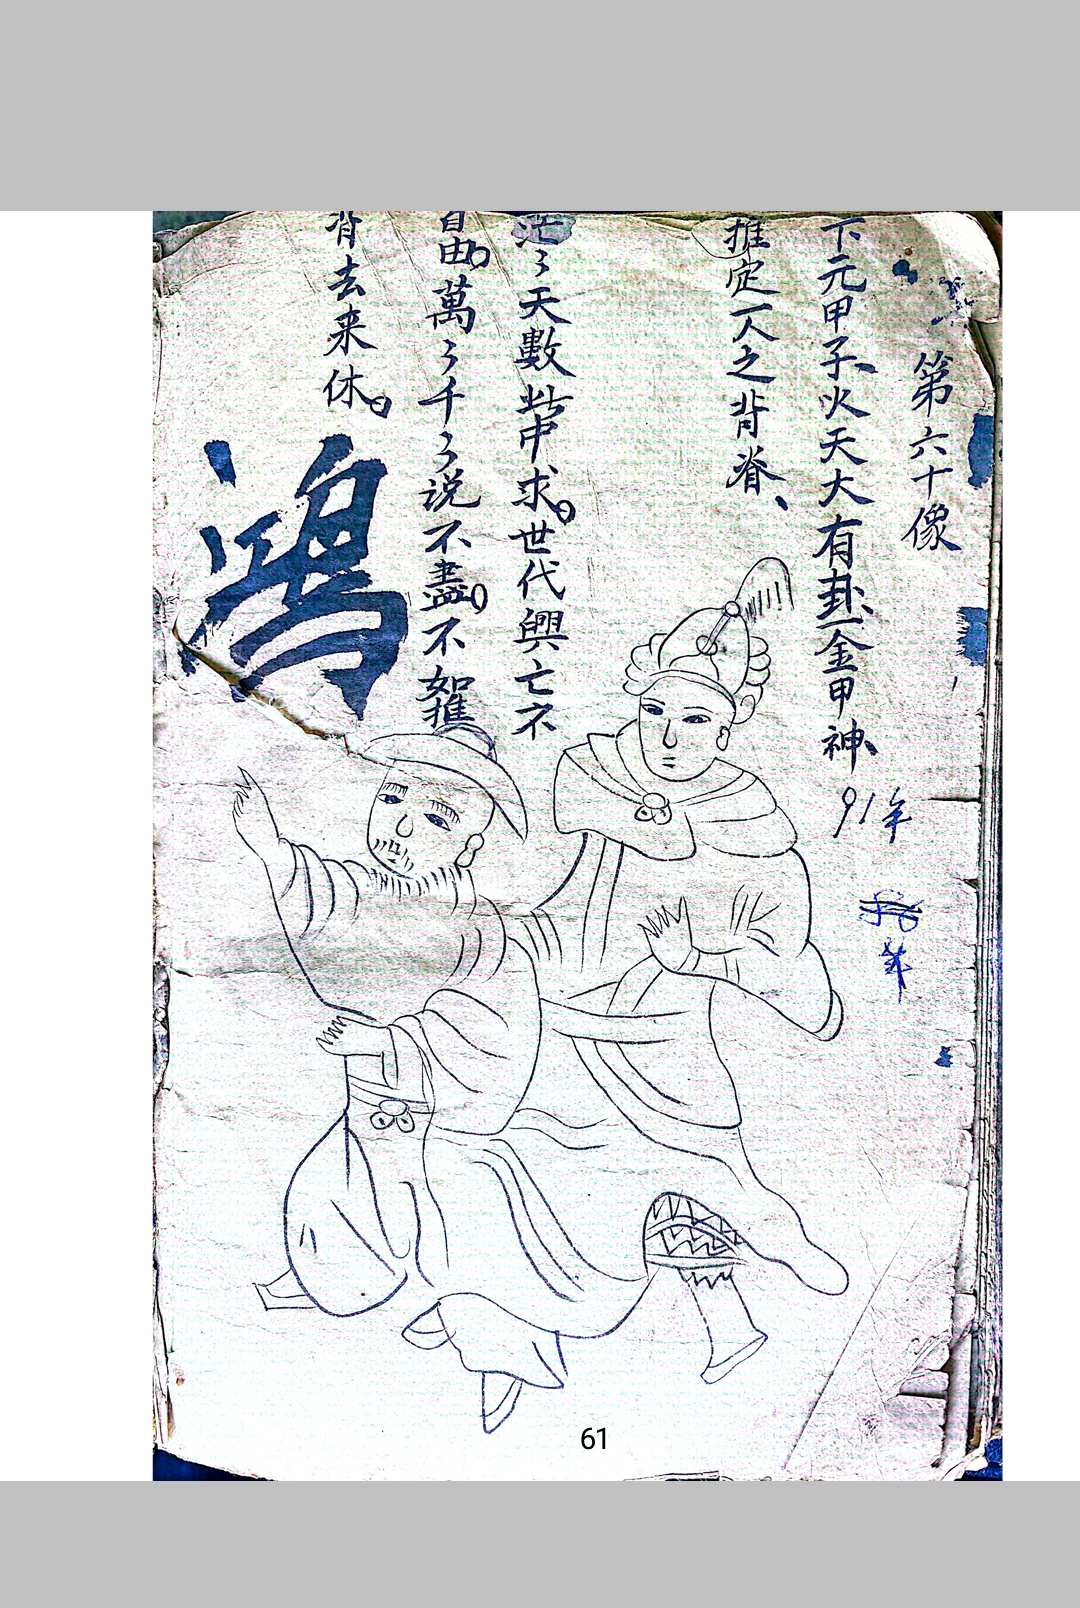 第六十像
下元甲子、火天大有卦、金甲神、
91年
推定一人之背脊、
茫〻天數此中求。世代興亡不
自由。萬〻千〻说不盡。不如推
背去来休。
鴻
61